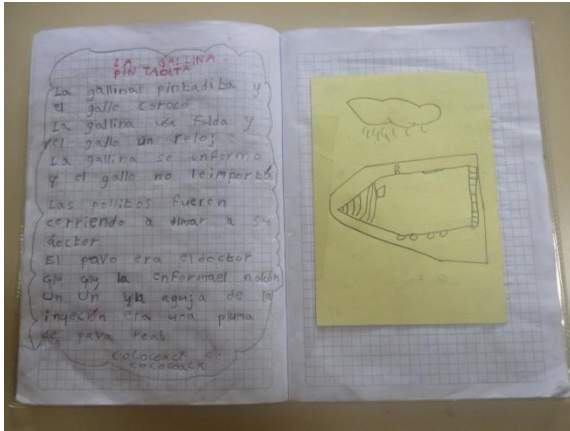 LA GALLINA
PINTADITA
La gallina pintadita y
el gallo coroco
La gallina usa falda y
el gallo un reloj
La gallina se enfermo
y el gallo no le importo
Las pollitos fueron
corriendo a llmar a su
doctor
El pavo era el doctor
glu glu la enfermael
un un y la aguja de la
inyeción era una pluma
de pavo real
cococoack co
cococoack